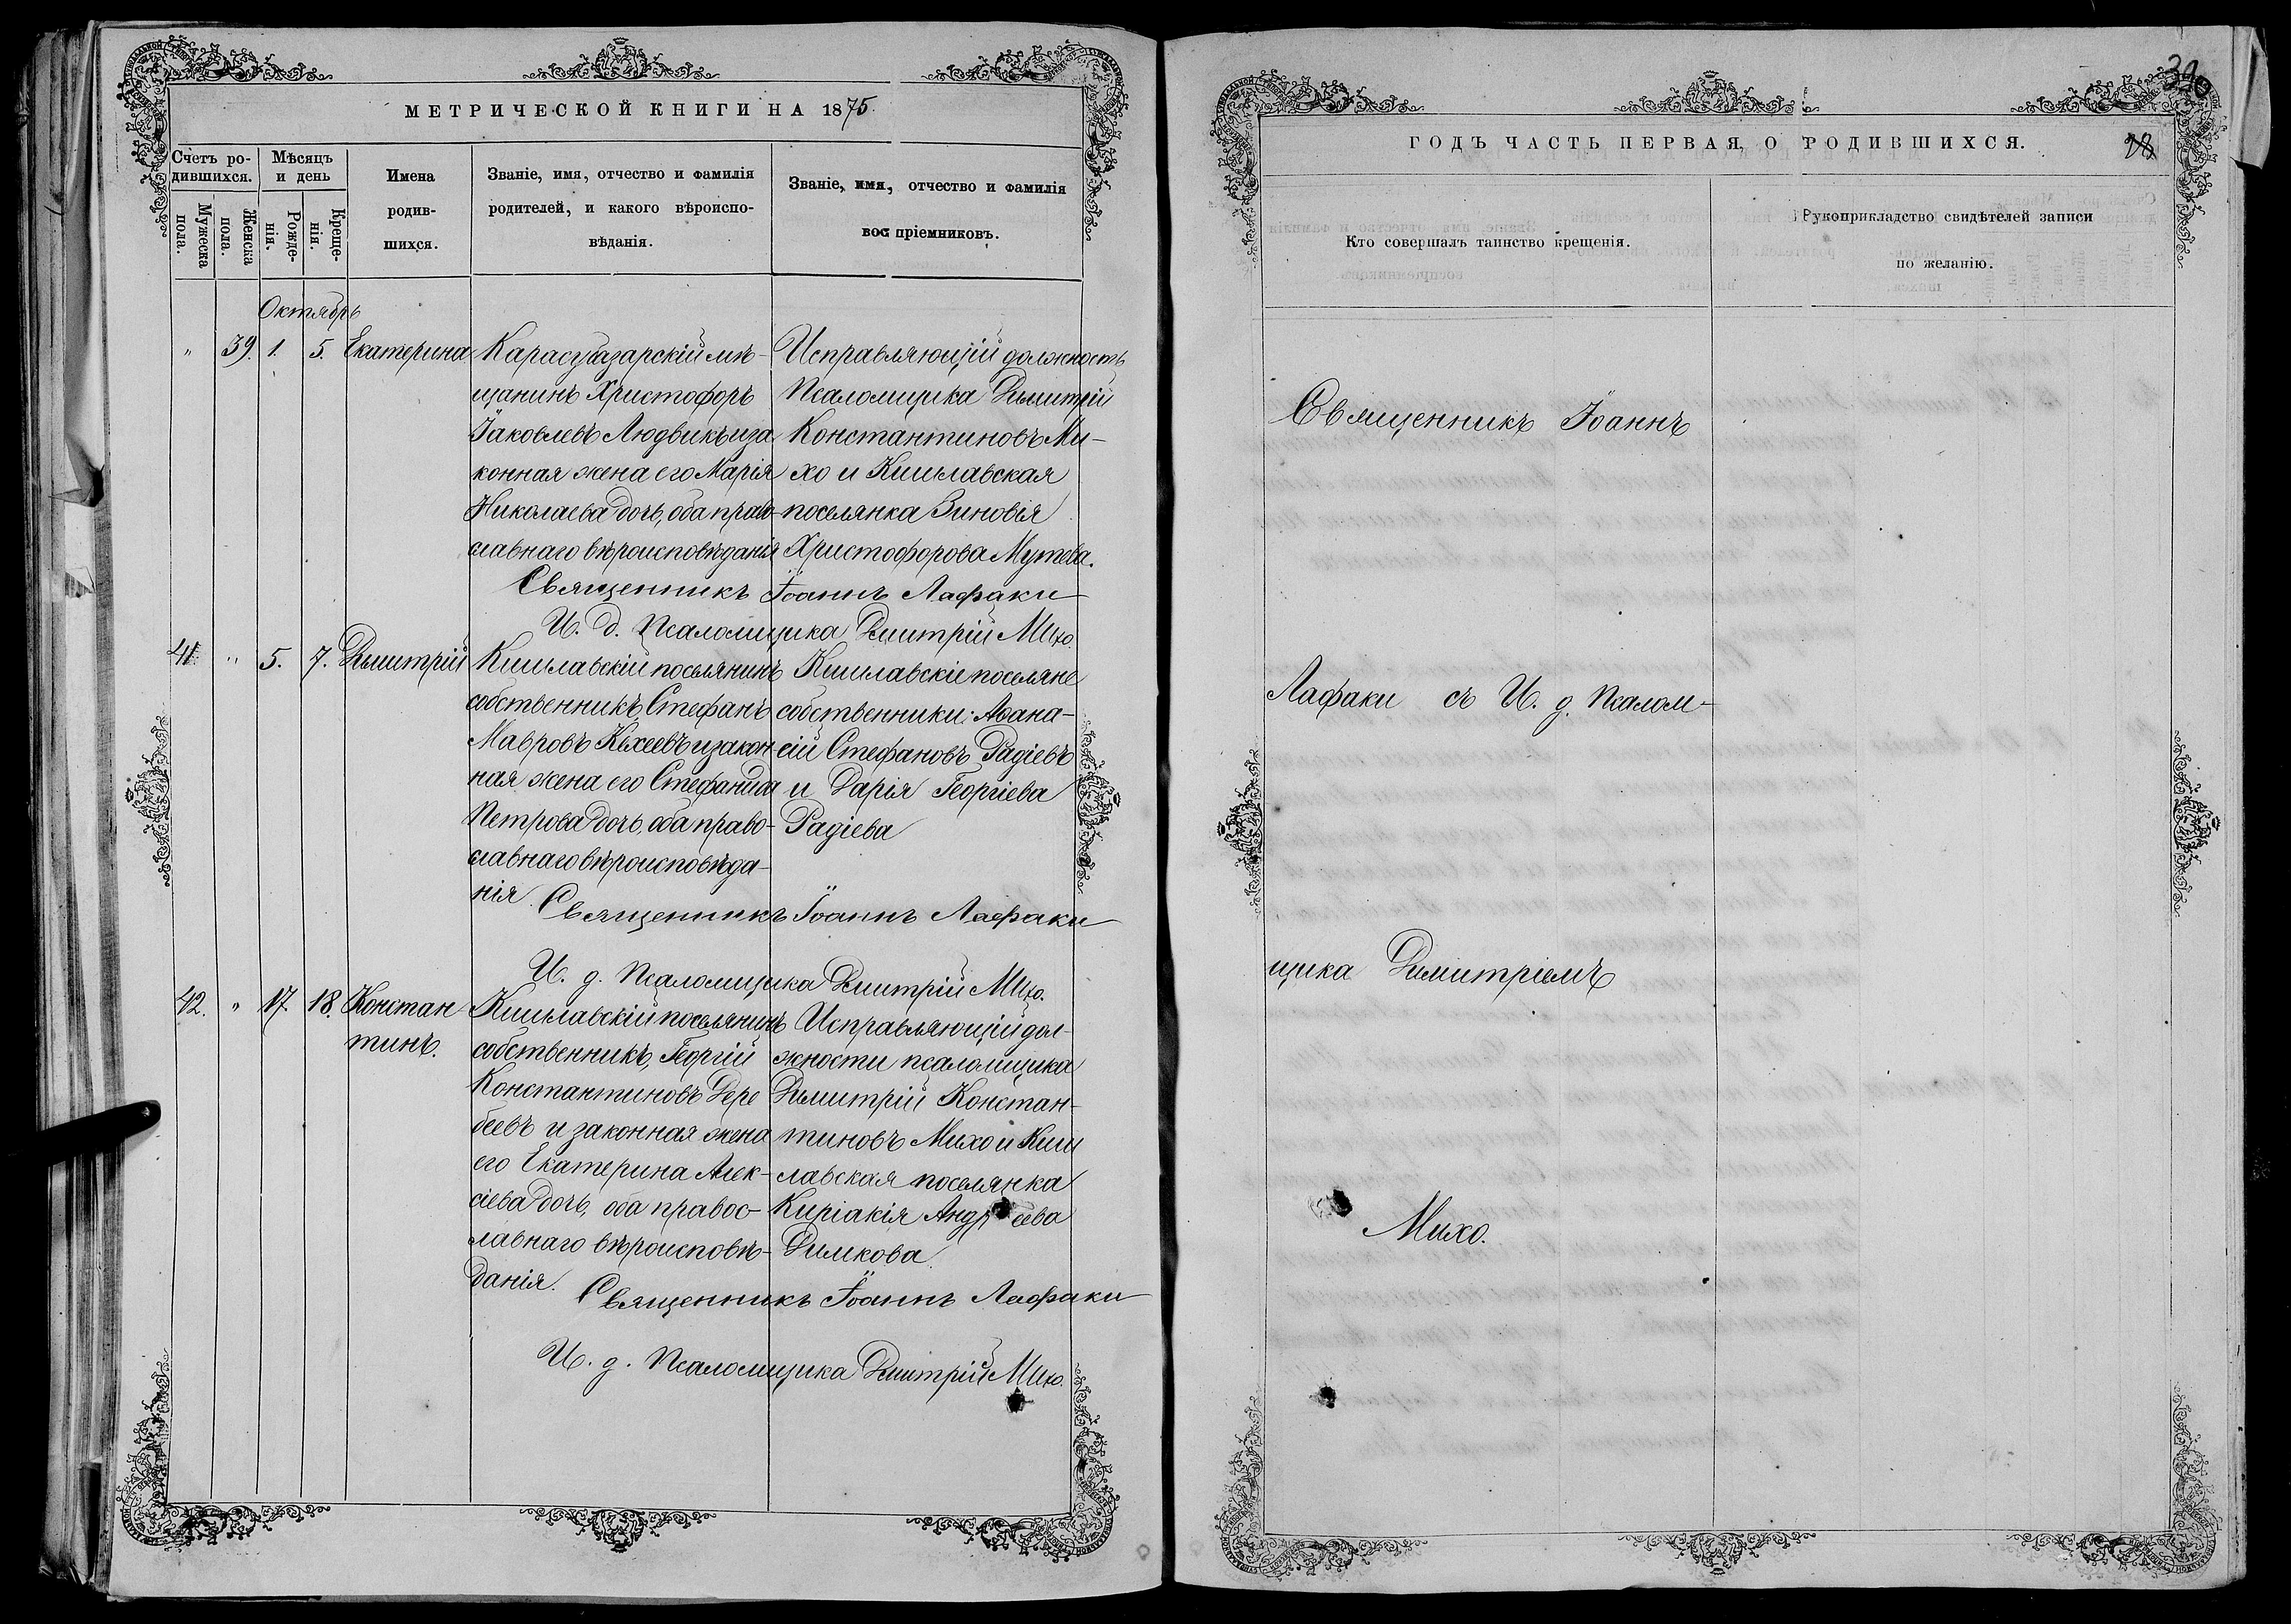 МЕТРИЧЕСКОЙ КНИГИ НА 1875.
Счетъ ро-
дившихся.
Мужеска
пола.
Женска
пола.
Мѣсяцъ
и день
Рожде-
нія.
Креще-
нія.
Имена
родив-
шихся.
Званіе, имя, отчество и фамилія
родителей, и какого вѣроиспо-
вѣданія.
Званіе, имя, отчество и фамилія
воспріемниковъ.
Октябрь
" 39. 1. 5. Екатерина
Карасубазарскій мѣ-
щанинъ Христофоръ
Іаковлевъ Людвикъ и за
конная жена его Марія
Николаева дочь, оба право-
славнаго вѣроисповѣданія
Исправляющій должность
Псаломщика Димитрій
Константиновъ Ми-
хо и Кишлавская
поселянка Зиновія
Христофорова Мутева.
Священникъ Іоаннъ Лафаки
И. д. Псаломщика Дмитрій Михо.
41. " 5. 7. Димитрій
Кишлавскій поселянинъ
собственникъ, Стефанъ
Мавровъ Кехеевъ и закон
ная жена его Стефанида
Петрова дочь, оба право-
славнаго вѣроисповѣда-
нія
Кишлавскіе поселяне
собственники: Аѳана-
сій Стефановъ Радіевъ
и Дарія Георгіева
Радіева
Священникъ Іоаннъ Лафаки
И. д. Псаломщика Дмитрій Михо.
42. " 17. 18. Констан
тинъ.
Кишлавскій поселянинъ
собственникъ, Георгій
Константиновъ Дере
беевъ и законная жена
его Екатерина Алек-
сіева дочь, оба правос-
лавнаго вѣроисповѣ-
данія.
Исправляющій дол-
жности псаломщика
Димитрій Констан-
тиновъ Михо и Киш
лавская поселянка
Киріакія Андреева
Димкова.
Священникъ Іоаннъ Лафаки
И. д. Псаломщика Дмитрій Михо.
ГОДЪ ЧАСТЬ ПЕРВАЯ, О РОДИВШИХСЯ.
28
Кто совершалъ таинство крещенія.
Рукоприкладство свидѣтелей записи
по желанію.
Священникъ Іоаннъ
Лафаки съ И. д. Псалом-
щика Димитріемъ
Михо.